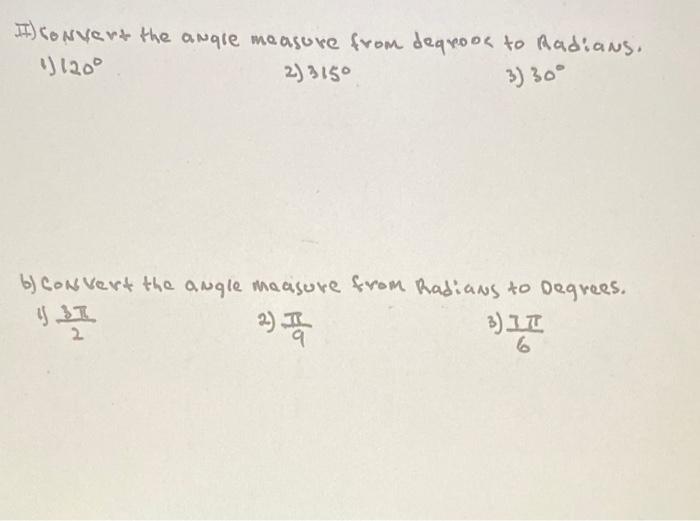 II) Convert the angle measure from degrees to Radians.
1) 120° 2) 315° 3) 30°
b) Convert the angle measure from Radians to Degrees.
1) 3π/2 2) π/9 3) 7π/6